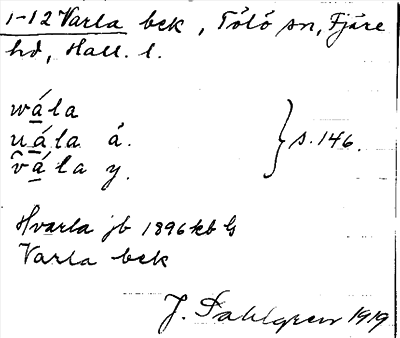 1-12 Varla bek, Tölö sn, Fjäre
hd, Hall. l.
wála
uála å.
v́ála y.
} s. 146.
Hvarla jb 1896 kb G
Varla bek
J. Sahlgren 1919